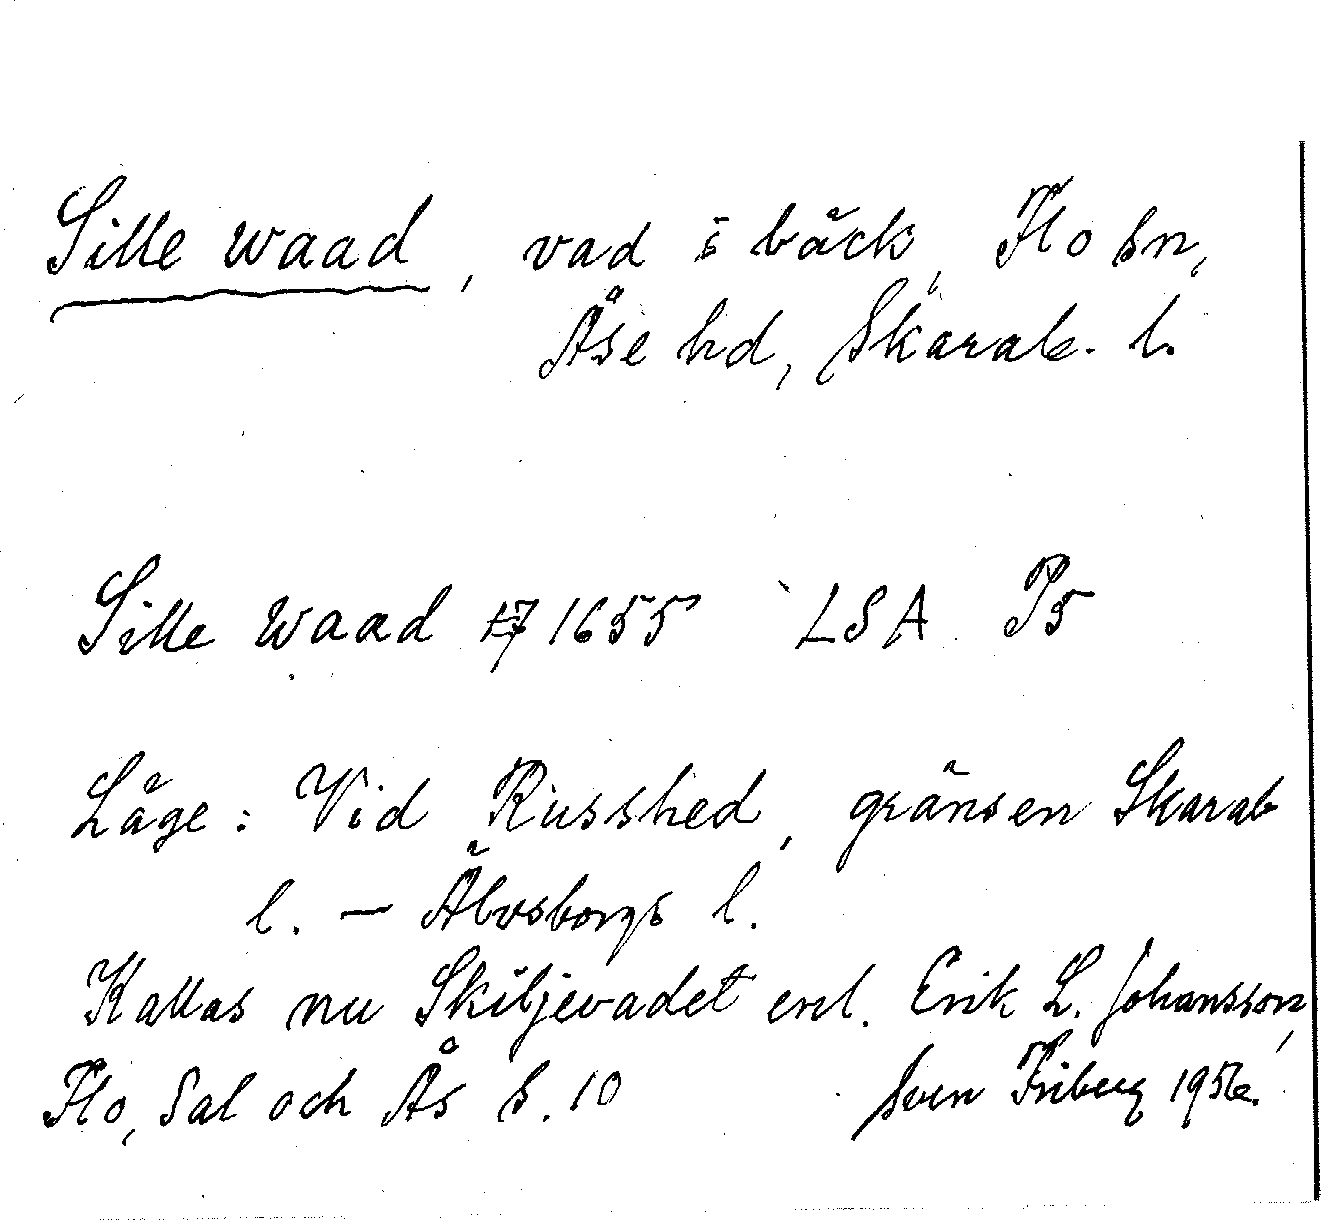 Sille waad, vad i bäck, Flo sn,
Åse hd, Skarab. l.
Sille waad 1655 LSA P5
Läge: Vid Russhed, gränsen Skarab
l. – Älvsborgs l.
Kallas nu Skiljevadet enl. Erik L. Johansson,
Flo, Sal och Ås s. 10 Sven Friberg 1956.